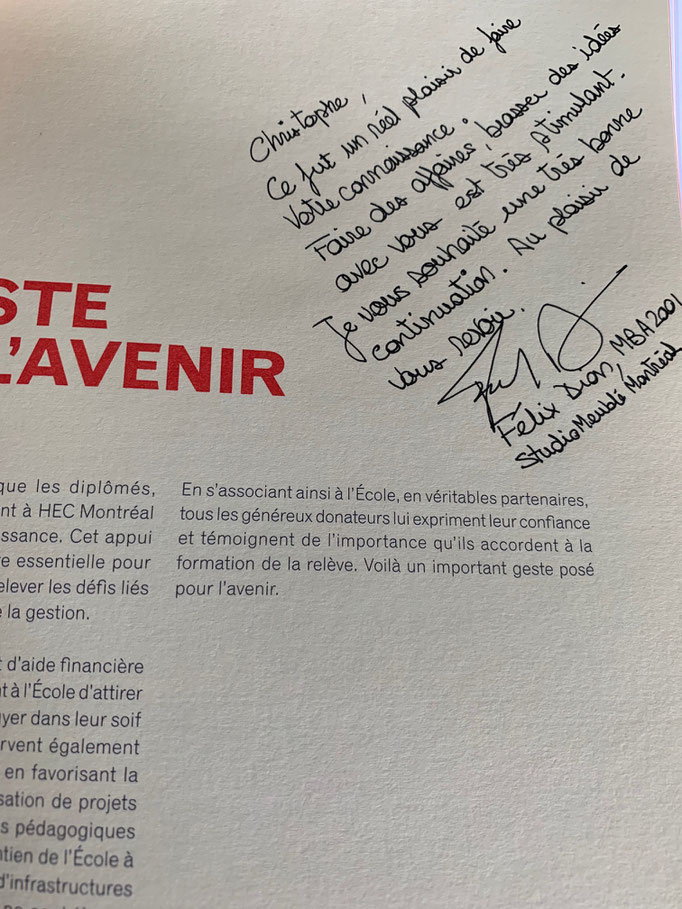 Christophe,
Ce fut un réel plaisir de faire
votre connaissance.
Faire des affaires, brasser des idées
avec vous est très stimulant.
Je vous souhaite une très bonne
continuation. Au plaisir de
vous revoir.
Félix Dion, MBA2001
StudioMeublé Montréal
STE
L'AVENIR
que les diplômés,
nt à HEC Montréal
ssance. Cet appui
re essentielle pour
elever les défis liés
e la gestion.
t d'aide financière
nt à l'École d'attirer
yer dans leur soif
rvent également
en favorisant la
sation de projets
s pédagogiques
ntien de l'École à
d'infrastructures
En s'associant ainsi à l'École, en véritables partenaires,
tous les généreux donateurs lui expriment leur confiance
et témoignent de l'importance qu'ils accordent à la
formation de la relève. Voilà un important geste posé
pour l'avenir.